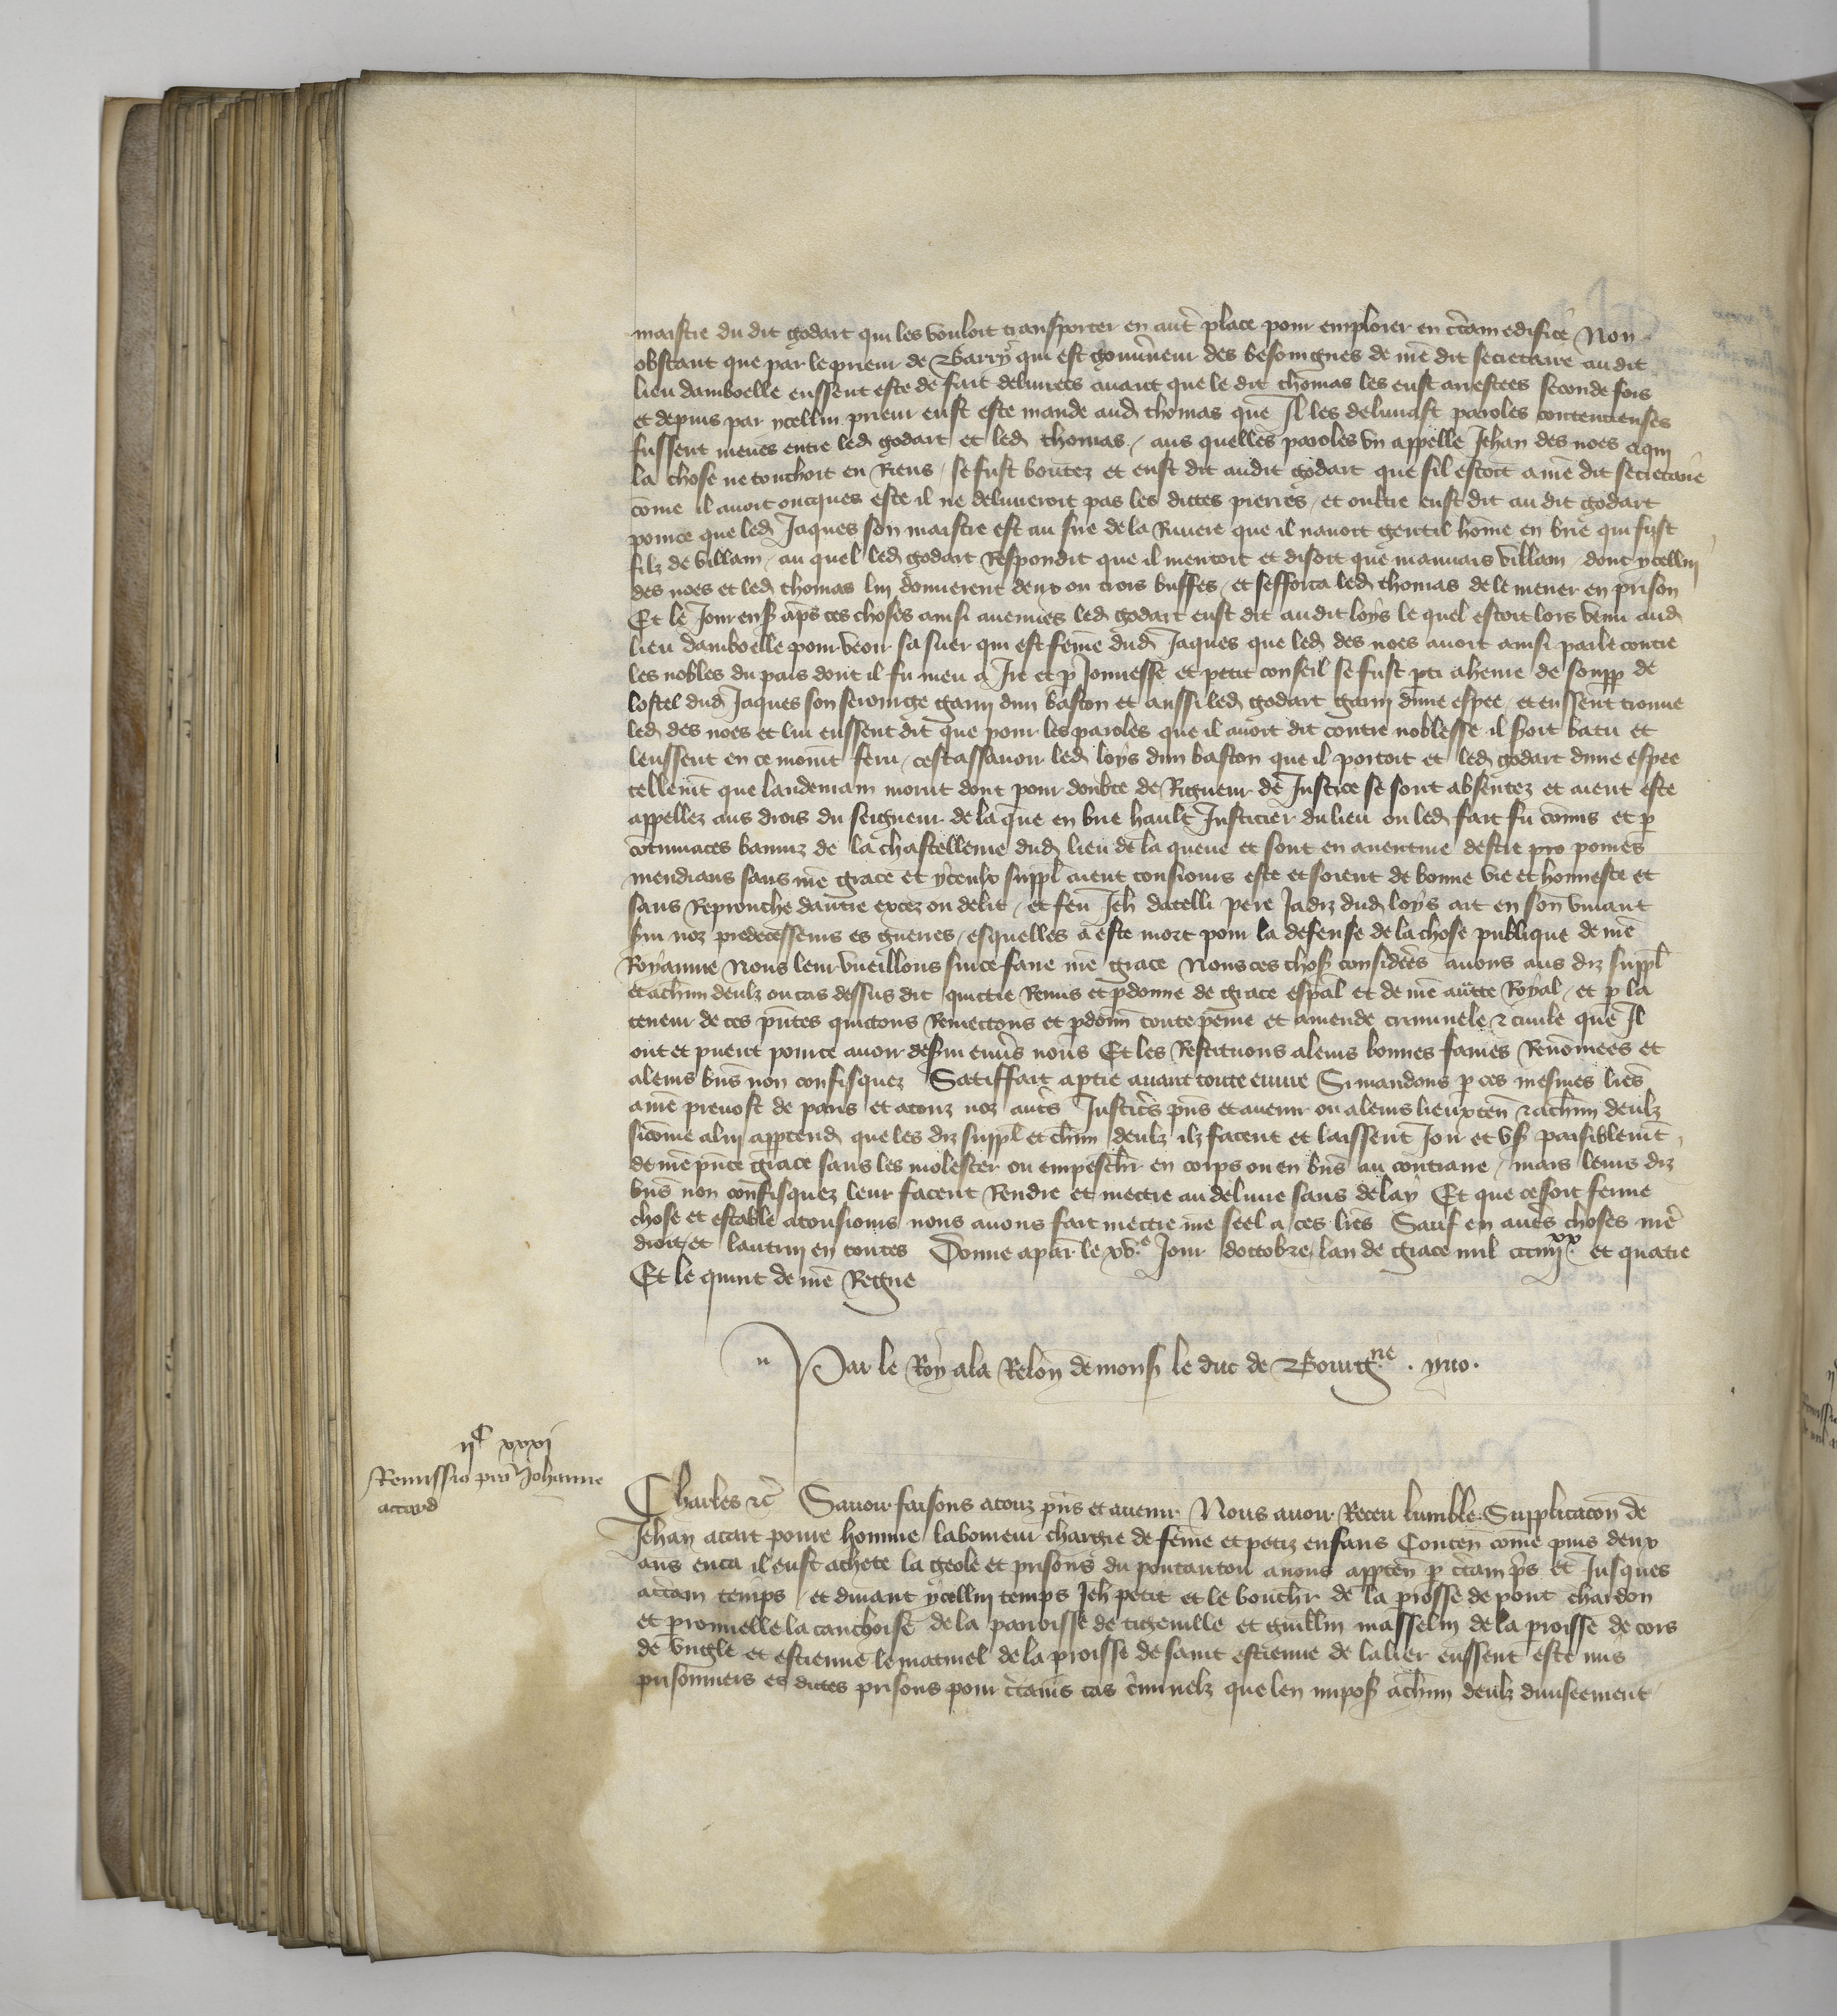 maistre du dit godart qui les vouloit transporter en autre place pour emploier en ctain edifice Non
obstant que par le prieur de Barry qui est gouvneur des besoingnes de nre dit secretaire au dit
lieu damboelle eussent este de fait delivrees avant que le dit thomas les eust arrestees seconde fois
et depuis par ycellui prieur eust este mande aud thomas que Il les delivrast paroles contencieuses
fussent meues entre led godart et led thomas / aus quelles paroles un appelle Jehan des noes a qui
la chose ne touchoit en Riens / se fust boutez et eust dit audit godart que sil estoit a nre dit secretaire
come il avoit oncques este il ne delivreroit pas les dittes pierres / et oultre eust dit au dit godart
pource que led Jaques son maistre est au sire de la Riviere que il navoit gentil home en brie qui fust
filz de villain / au quel led godart Respondit que il mentoit et disoit que mauvais villain / dont ycellui
des noes et led thomas lui donnerent deux ou trois buffes / et sefforca led thomas de le mener en prison
Et le Jour ens aps ces choses ainsi avenues led godart eust dit audit loys le quel estoit lors venu aud
lieu damboelle pour veoir sa suer qui est feme dud Jaques que led des noes avoit ainsi parle contre
les nobles du pais dont il fu meu a Ire et p Jonnesse et petit conseil se fust pti a heure de soupp de
lostel dud Jaques son serourge garni dun baston et aussi led godart garni dune espee / et eussent trouve
led des noes et lui eussent dit que pour les paroles que il avoit dit contre noblesse il seroit batu et
leussent en ce momt feru / cestassavoir led loys dun baston que il portoit et led godart dune espee
tellemt que landemain morut dont pour doubte de Rigueur de Justice se sont absentez et aient este
appellez aus drois du seigneur de la que en brie hault Justicier du lieu ou led fait fu comis et p
contumaces banniz de la chastellenie dud lieu de la queue et sont en aventure destre pro povres
mendians sans nre grace et yceulx suppl aient tousiours este et soient de bonne vie et honneste et
sans Reprouche dautre excez ou delit / et feu Jeh datelli pere Jadiz dud loys ait en son vivant
svi noz predecesseurs es guerres / esquelles a este mort pour la defense de la chose publique de nre
Royaume Nous leur vueillons sur ce faire nre grace Nous ces chos considerees avons aus diz suppl
et a chun deulz ou cas dessus dit quictie Remis et pdonne de grace espal et de nre auctte Royal / et p la
teneur de ces pntes quictons Remettons et pdonn toute peine et amende criminele & civile que Il
ont et puent pource avoir desvi envs nous Et les Restituons a leurs bonnes fames Renomees et
a leurs bns non confisquez Satiffait a ptie avant toute euvre Si mandons p ces mesmes lres
a nre prevost de paris et a touz noz autrs Justicrs pns et avenir ou a leurs lieuxten & a chun deulz
sicome a lui apptend que les diz suppl et chun deulz ilz facent et laissent Joir et us paisiblemt
de nre pnte grace sans les molester ou empeschr en corps ou en bns au contraire / mais leurs diz
bns non confisquez leur facent Rendre et mectre au delivre sans delay Et que ce soit ferme
chose et estable a tousiours nous avons fait mectre nre seel a ces lres Sauf en autrs choses nre
droit et lautrui en toutes Donne a par le xve Jour doctobre lan de grace mil ccc iiijxx et quatre
Et le quint de nre Regne
Par le Roy a la Relon de mons le duc de Bourgne . yvo.
ijC xxxj
Remissio pro Johanne
acard
Charles &c Savoir faisons a touz pns et avenir Nous avoir Receu lumble Supplicacon de
Jehan acart povre homme labooureur chargie de feme et petiz enfans Conten come puis deux
ans enca il eust achete la geole et prisons du pontautou a nous appten p ctain ps et Jusques
a ctain temps / et durant ycellui temps Jeh petit et le bouchr de la prosse de pont chardon
et pronnelle la cauchoise de la parroisse de tigeville et guillm masselin de la proisse de cors
de Vngle et estienne le matinel de la proisse de saint estienne de lalier eussent este mis
prisonniers es dictes prisons pour ctains cas criminelz que len impos a chun deulz diviseement